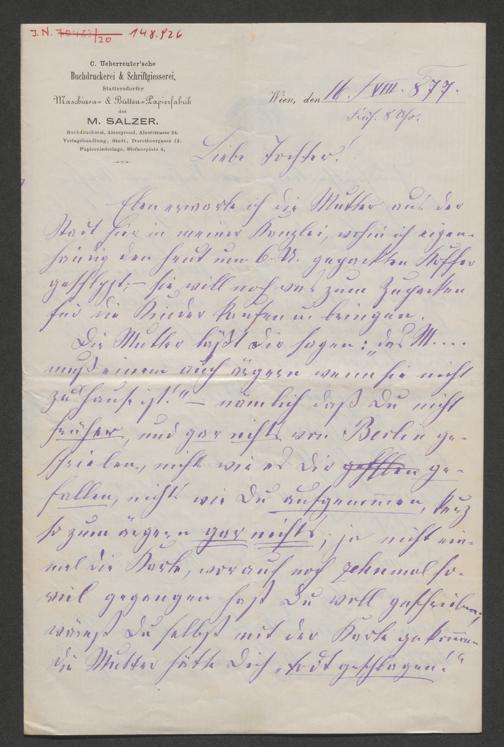 J.N. 70487/20 148.926
C. Ueberreuter'sche
Buchdruckerei & Schriftgiesserei,
Stattersdorfer
Maschinen- & Bütten-Papierfabrik
des
M. SALZER.
Buchdruckerei, Alsergrund, Alserstrasse 24.
Verlagshandlung, Stadt, Dorotheergasse 12.
Papierniederlage, Stefansplatz 4.
Wien, den 16./VIII. 877.
Früh. 8 Uhr.
Liebe Tochter!
Eben erwarte ich die Mutter aus der
Stadt hier in meiner Kanzlei, wohin ich eigen-
händig den heut um 6 U. gepackten Koffer
geschleppt; – sie will noch was zum Zupacken
für die Kinder kaufen u. bringen.
Die Mutter läßt Dir sagen: „das M....
muß einem auch ärgern wenn sie nicht
zu Hause ist!" – nämlich daß Du nicht
früher, und gar nichts von Berlin ge-
schrieben, nicht wie es Dir gefallen ge-
fallen, nicht wie Du aufgenommen, kurz
so zum ärgern gar nichts; ja nicht ein-
mal die Karte, worauf noch zehnmal so-
viel gegangen hast Du voll geschrieben,
wärest Du selbst mit der Karte gekommen
die Mutter hätte Dich „todt geschlagen!"